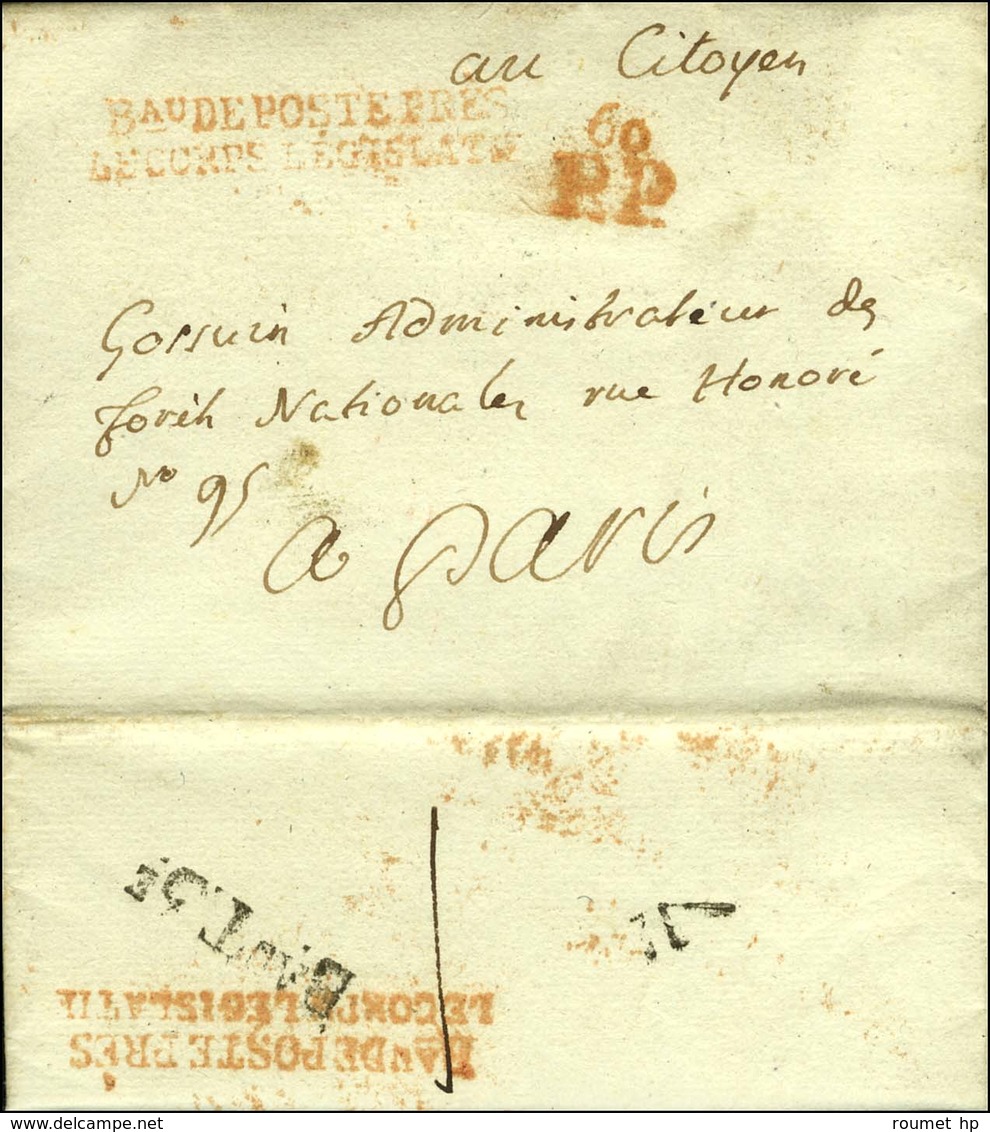 au Citoyen
BAU DE POSTE PRÈS
LE CORPS LÉGISLATIF
60
P.P
Gossuin Administrateur des
forêts Nationales rue Honoré
No 95
a paris
BAU T.
LE CORPS LÉGISLATIF
BAU DE POSTE PRÈS
delcampe.net
roumet hp